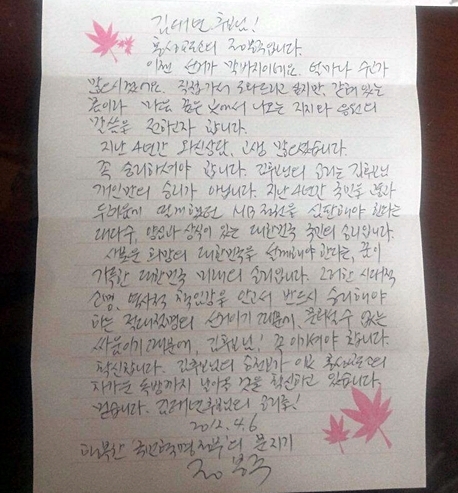 김대년 후보님!
홍성교도소의 정봉주입니다.
이젠 선거가 막바지이네요. 얼마나 수고가
많으시겠어요. 직접 가서 도와드리고 싶지만, 갇혀 있는
몸이라 마음 깊은 곳에서 나오는 지지와 응원의
말씀을 전하고자 합니다.
지난 4년간 와신상담, 고생 많으셨습니다.
꼭 승리하셔야 합니다. 김후보님의 승리는 김후보님
개인만의 승리가 아닙니다. 지난 4년간 국민을
두려움에 떨게했던 MB정권을 심판해야 한다는
대다수, 양심과 상식이 있는 대한민국 국민의 승리입니다.
희망의 대한민국을 설계해야 한다는, 꿈이
가득한 대한민국 미래의 승리입니다. 그러한 시대적
소명, 역사적 책임감을 안고서 반드시 승리해야
하는 절대절명의 선거이기 때문에, 물러설 수 없는
싸움이기 때문에, 김후보님! 꼭 이기셔야 합니다.
확신합니다. 김후보님의 승전보가 이곳 홍성교도소의
차가운 독방까지 날아올 것을 확신하고 있습니다.
믿습니다. 김대년후보님의 승리를!
2012. 4. 6
의 문지기
정봉주